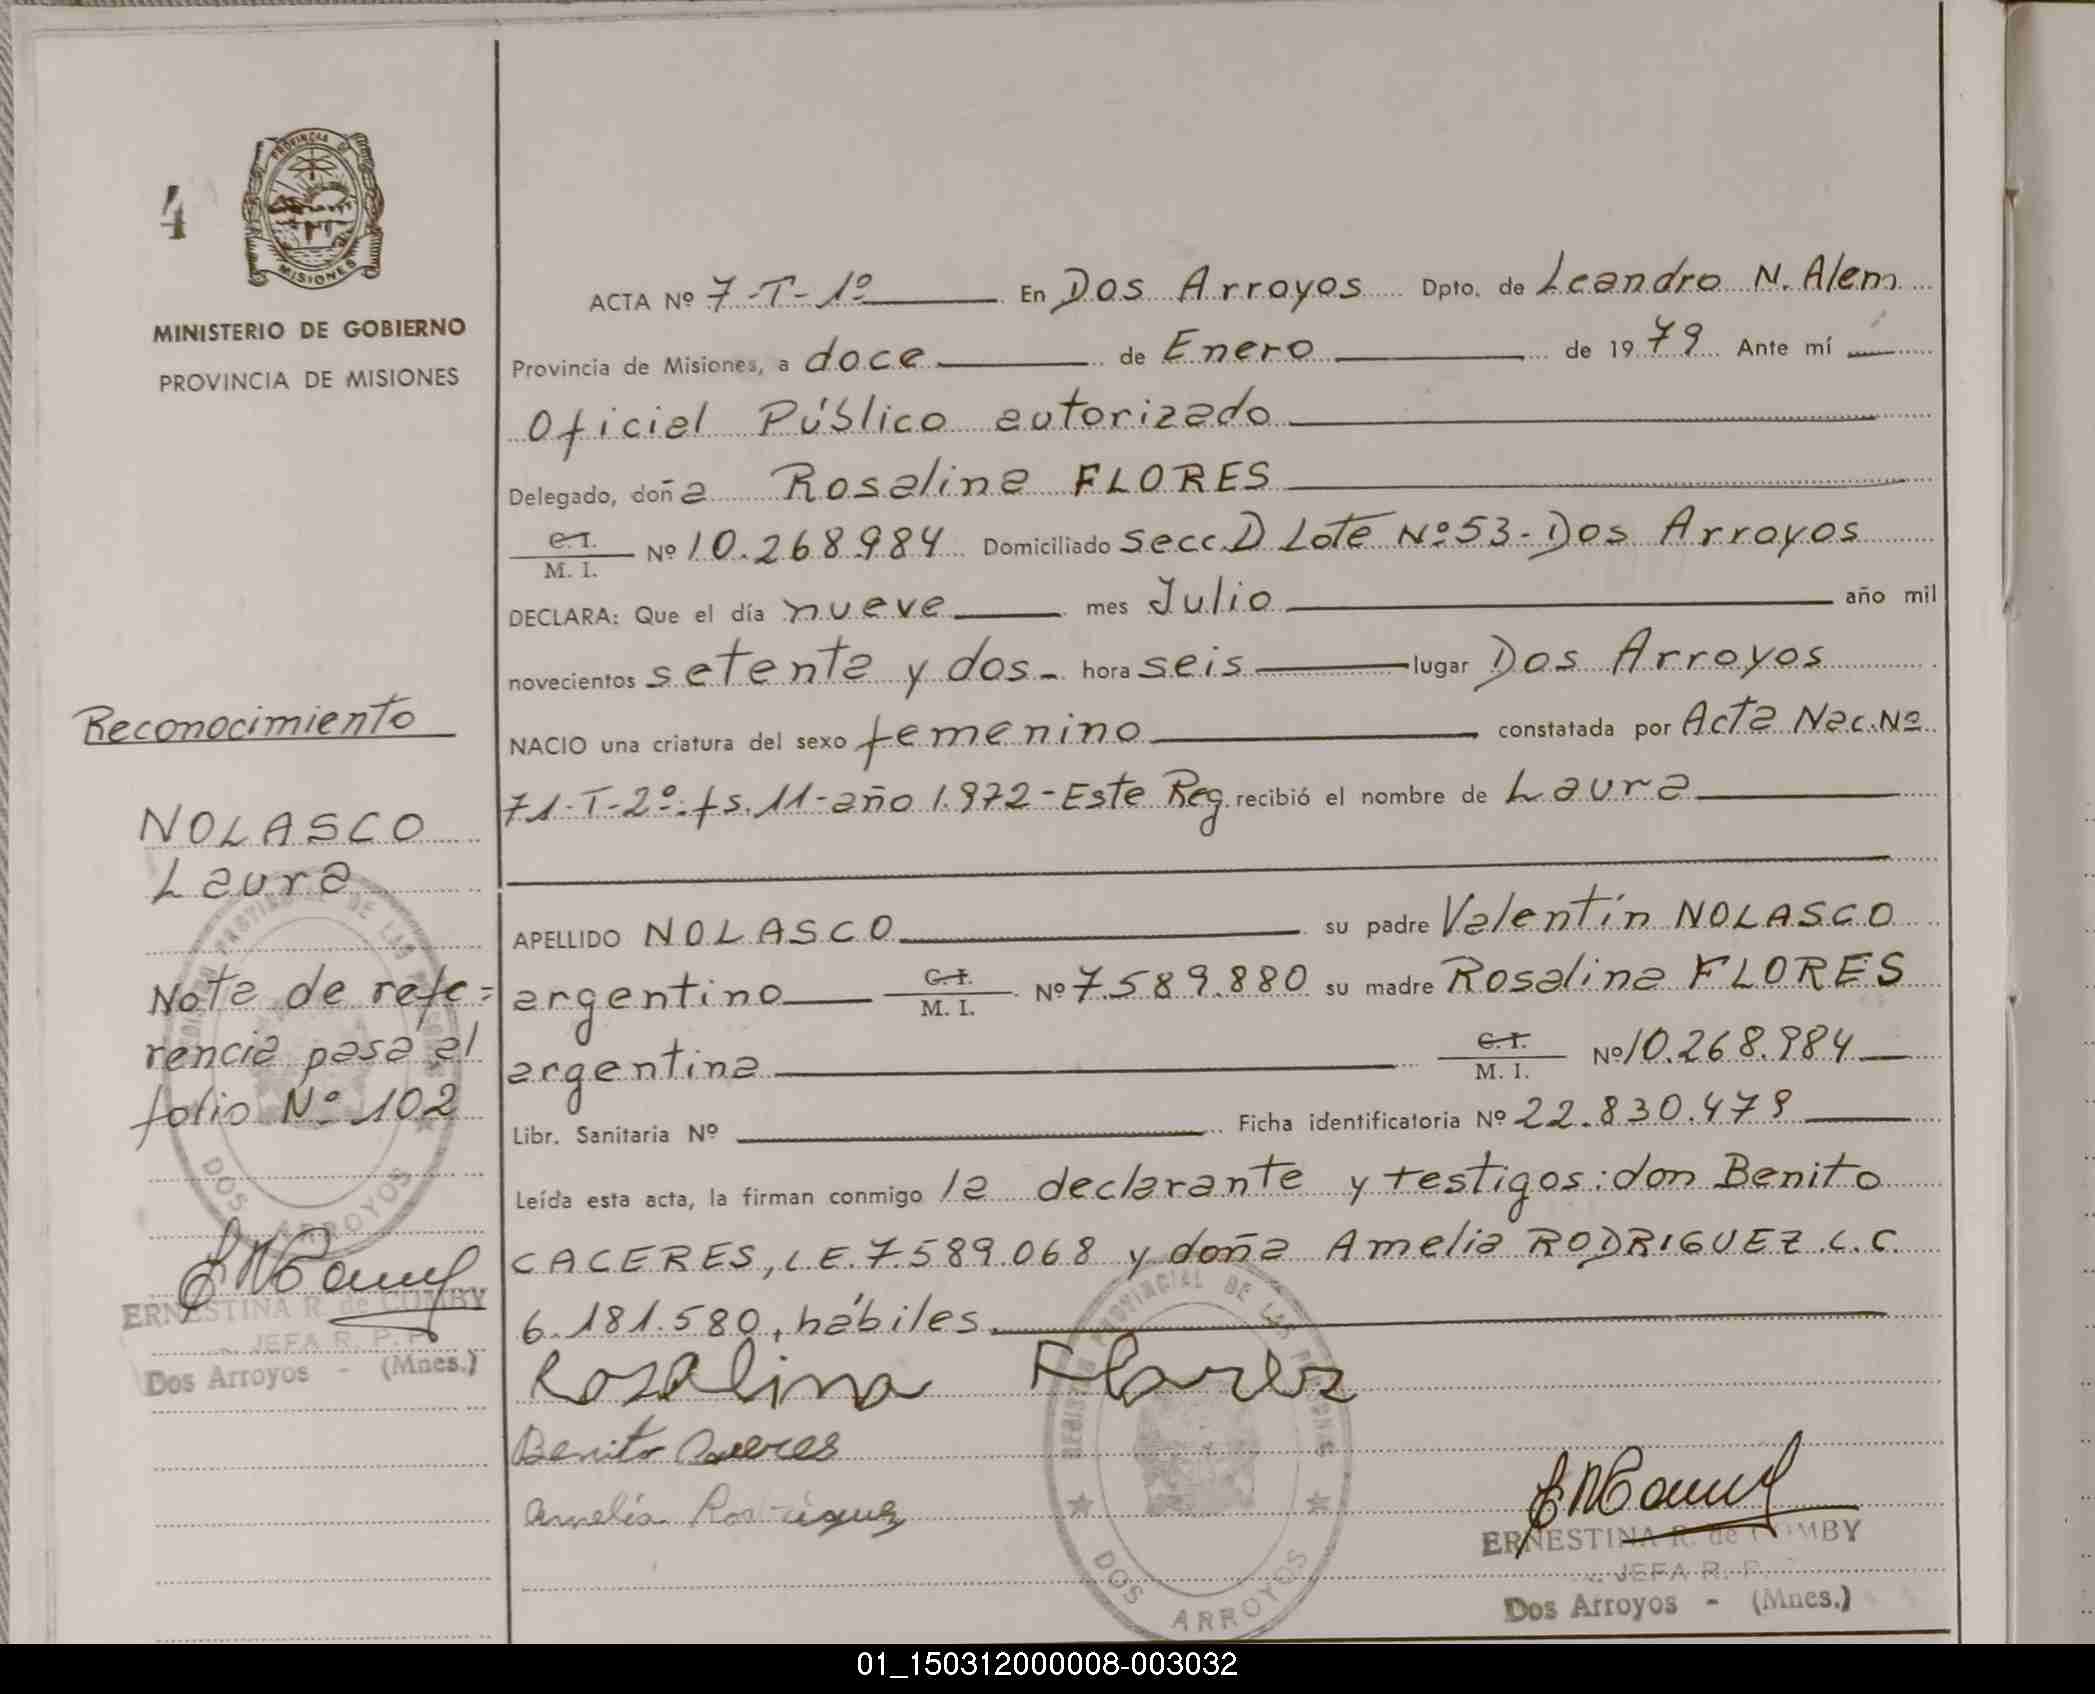 4
PROVINCIA DE
MISIONES
MINISTERIO DE GOBIERNO
PROVINCIA DE MISIONES
Reconocimiento
NOLASCO
Laura
Nota de refe=
rencia pasa al
folio Nº 102
DOS ARROYOS
ERNESTINA R. de COMBY
JEFA R. P.
Dos Arroyos - (Mnes.)
ACTA Nº 7-T-1º En Dos Arroyos Dpto. de Leandro N. Alem
Provincia de Misiones, a doce de Enero de 1979 Ante mí
Oficial Público autorizado
Delegado, doña Rosalina FLORES
C.I.
M. I. Nº 10.268.984 Domiciliado Secc. D Lote Nº 53-Dos Arroyos
DECLARA: Que el día nueve mes Julio año mil
novecientos setenta y dos- hora seis lugar Dos Arroyos
NACIO una criatura del sexo femenino constatada por Acta Nac. Nº
71-T-2º-fs.11-año 1.972-Este Reg. recibió el nombre de Laura
APELLIDO NOLASCO su padre Valentín NOLASCO
argentino C.I. M. I. Nº 7.589.880 su madre Rosalina FLORES
argentina C.I. M. I. Nº 10.268.984
Libr. Sanitaria Nº Ficha identificatoria Nº 22.830.479
Leída esta acta, la firman conmigo la declarante y testigos: don Benito
CACERES, L.E. 7.589.068 y doña Amelia RODRIGUEZ L.C.
6.181.580, hábiles.
Rosalina Flores
Benito Caceres
Amelia Rodriguez
REGISTRO PROVINCIAL DE LAS PERSONAS
DOS ARROYOS
ERNESTINA R. de COMBY
JEFA R. P.
Dos Arroyos - (Mnes.)
01_150312000008-003032